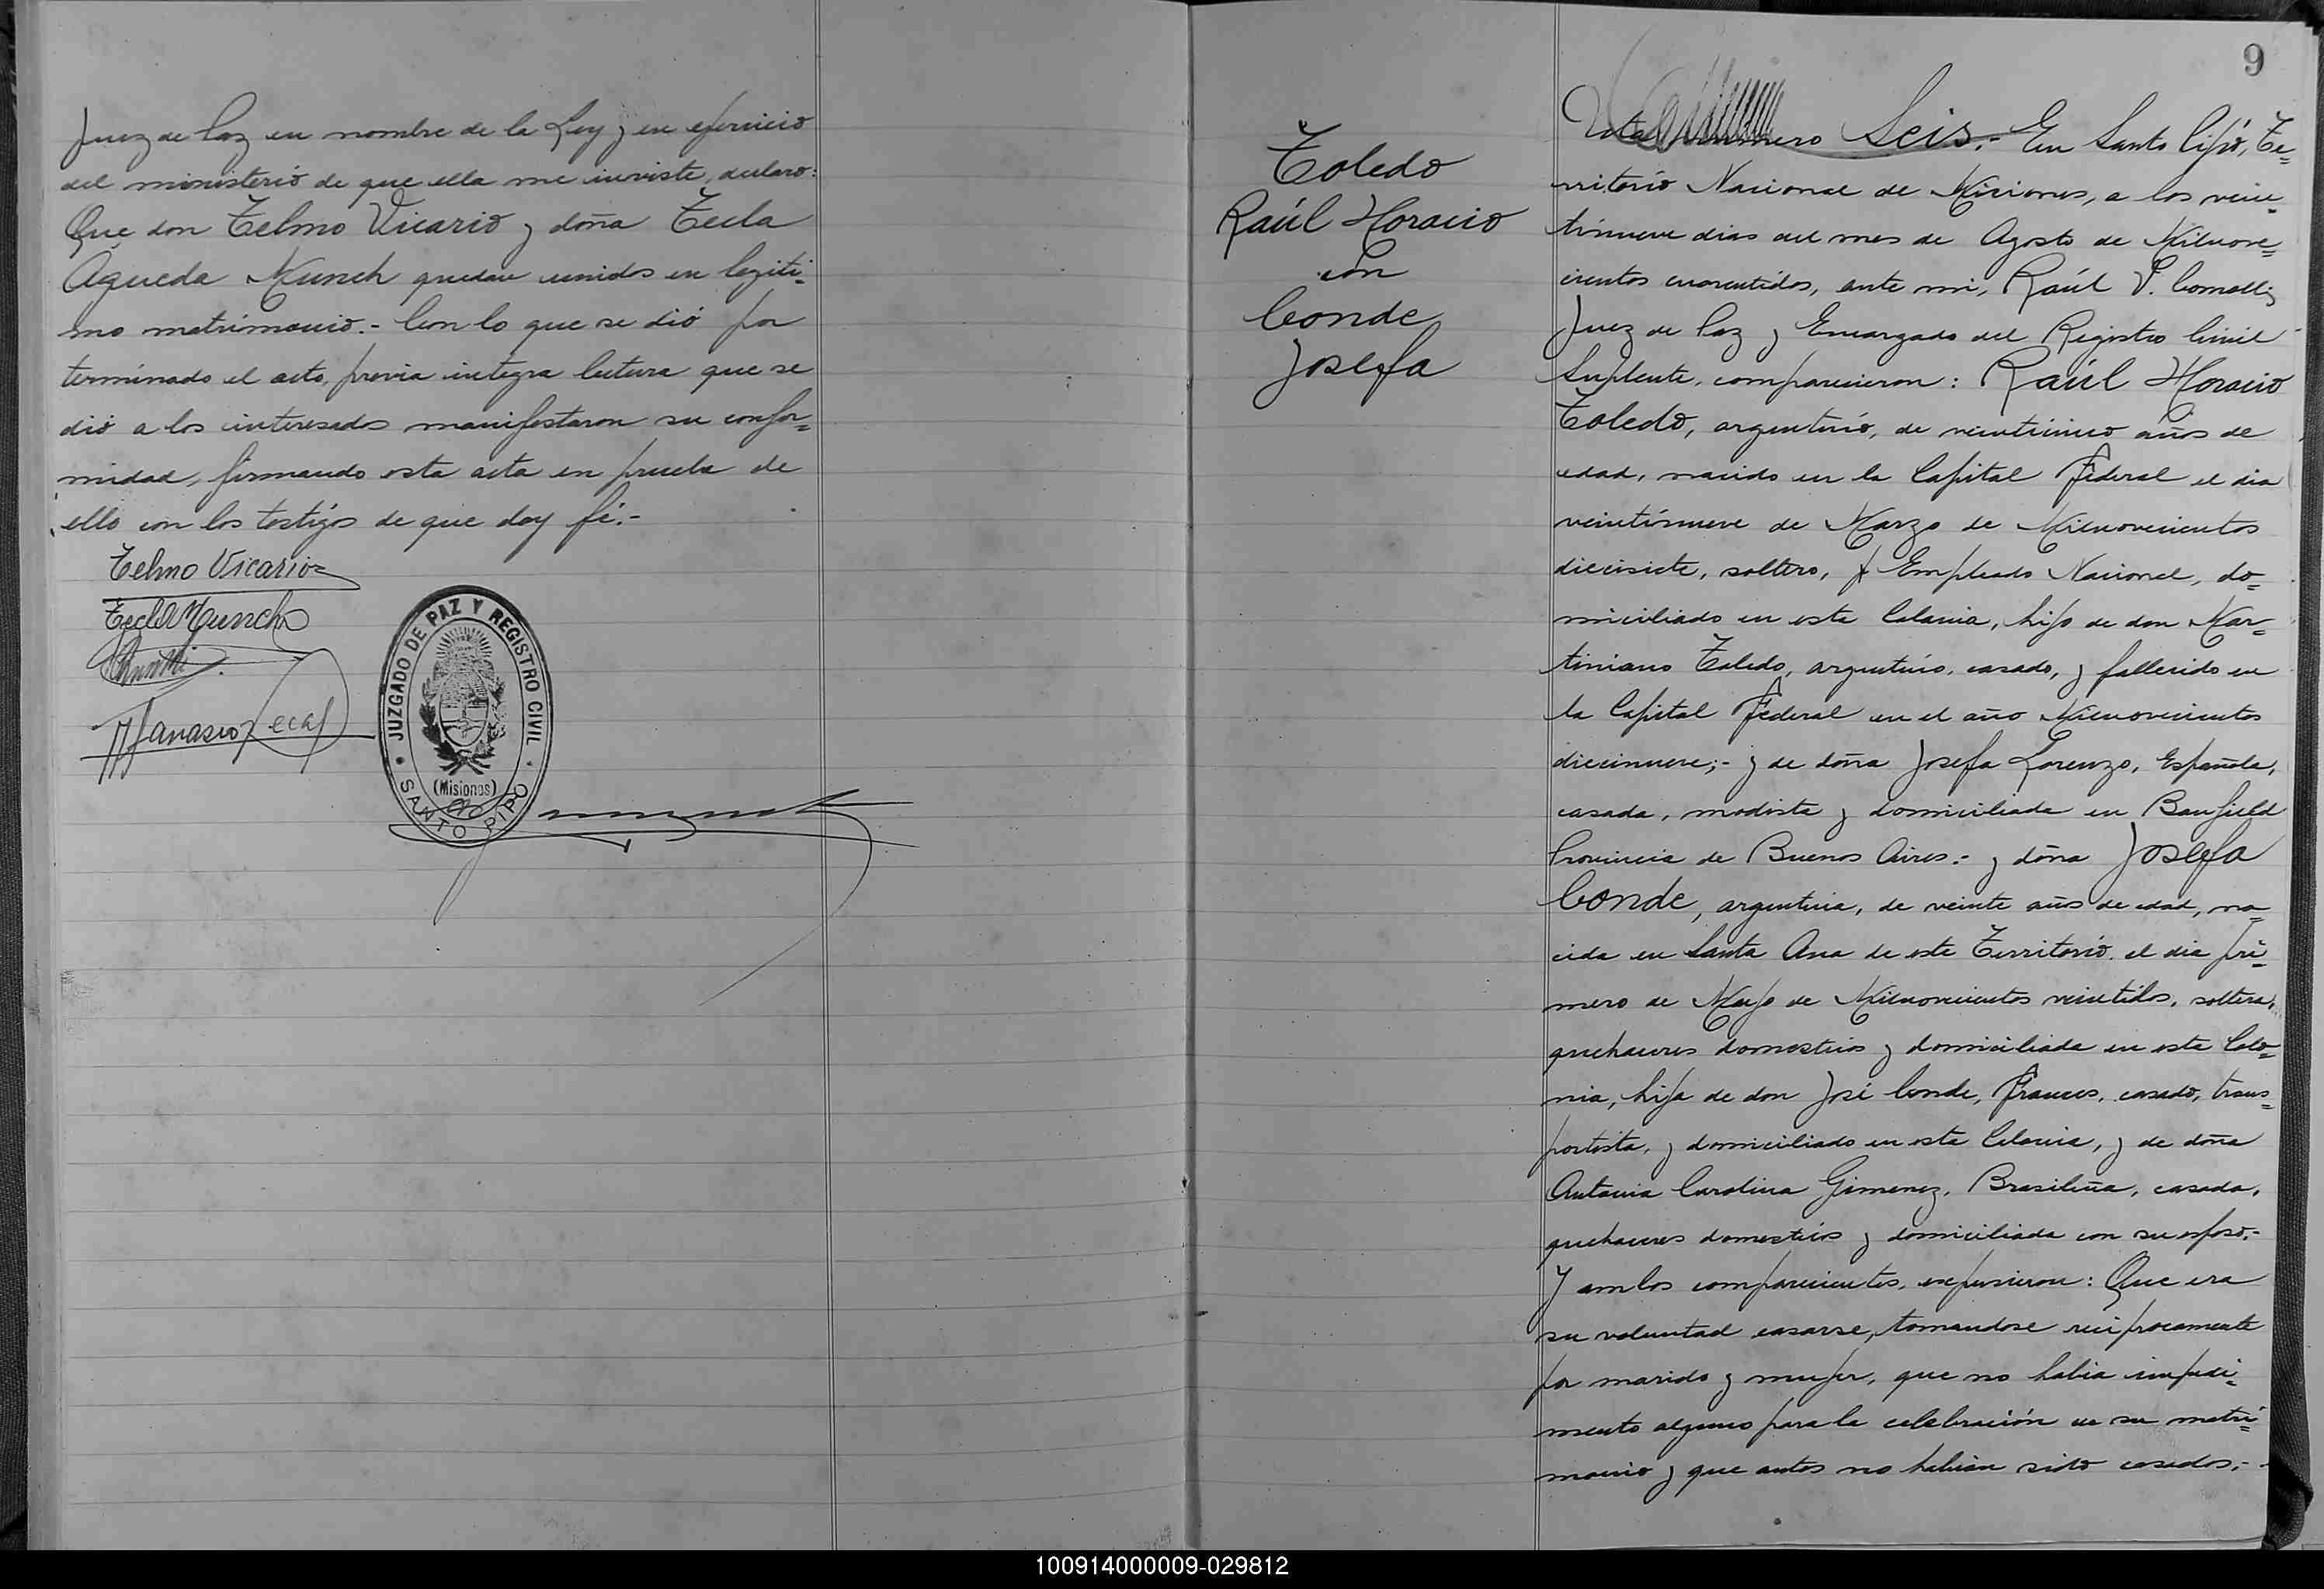 Juez de Paz en nombre de la Ley y en ejercicio
del ministerio de que ella me inviste, declaro:
Que don Telmo Vicario y doña Tecla
Agueda Munch quedan unidos en legiti=
mo matrimonio.- Con lo que se dió por
terminado el acto, previa integra lectura que se
dió a los interesados manifestaron su confor=
midad, firmando esta acta en prueba de
ello con los testigos de que doy fé.-
Telmo Vicario
Tecla Munch
JUZGADO DE PAZ Y REGISTRO CIVIL
(Misiones)
SANTO PIPÓ
9
Toledo
Raúl Horacio
con
Conde
Josefa
Acta número Seis.- En Santo Pipó, Te=
rritorio Nacional de Misiones, a los vein=
tinueve dias del mes de Agosto de Milnove=
cientos cuarentidos, ante mi, Raúl V. Comolli
Juez de Paz y Encargado del Registro Civil
Suplente, comparecieron: Raúl Horacio
Toledo, argentino, de veinticinco años de
edad, nacido en la Capital Federal el dia
veintinueve de Marzo de Milnovecientos
diecisiete, soltero, Empleado Nacional, do=
miciliado en esta Colonia, hijo de don Mar=
tiniano Toledo, argentino, casado, y fallecido en
la Capital Federal en el año Milnovecientos
diecinueve;- y de doña Josefa Lorenzo, Española,
casada, modista y domiciliada en Banfield
Provincia de Buenos Aires.- y doña Josefa
Conde, argentina, de veinte años de edad, na=
cida en Santa Ana de este Territorio el dia pri=
mero de Mayo de Milnovecientos veintidos, soltera,
quehaceres domesticos y domiciliada en esta Colo=
nia, hija de don José Conde, Frances, casado, trans=
portista, y domiciliado en esta Colonia, y de doña
Antonia Carolina Gimenez, Brasileña, casada,
quehaceres domesticos y domiciliada con su esposo.-
Y ambos comparecientes, expusieron: Que era
su voluntad casarse, tomandose reciprocamente
por marido y mujer, que no habia impedi=
mento alguno para la celebración de su matri=
monio y que antes no habian sido casados.-
100914000009-029812